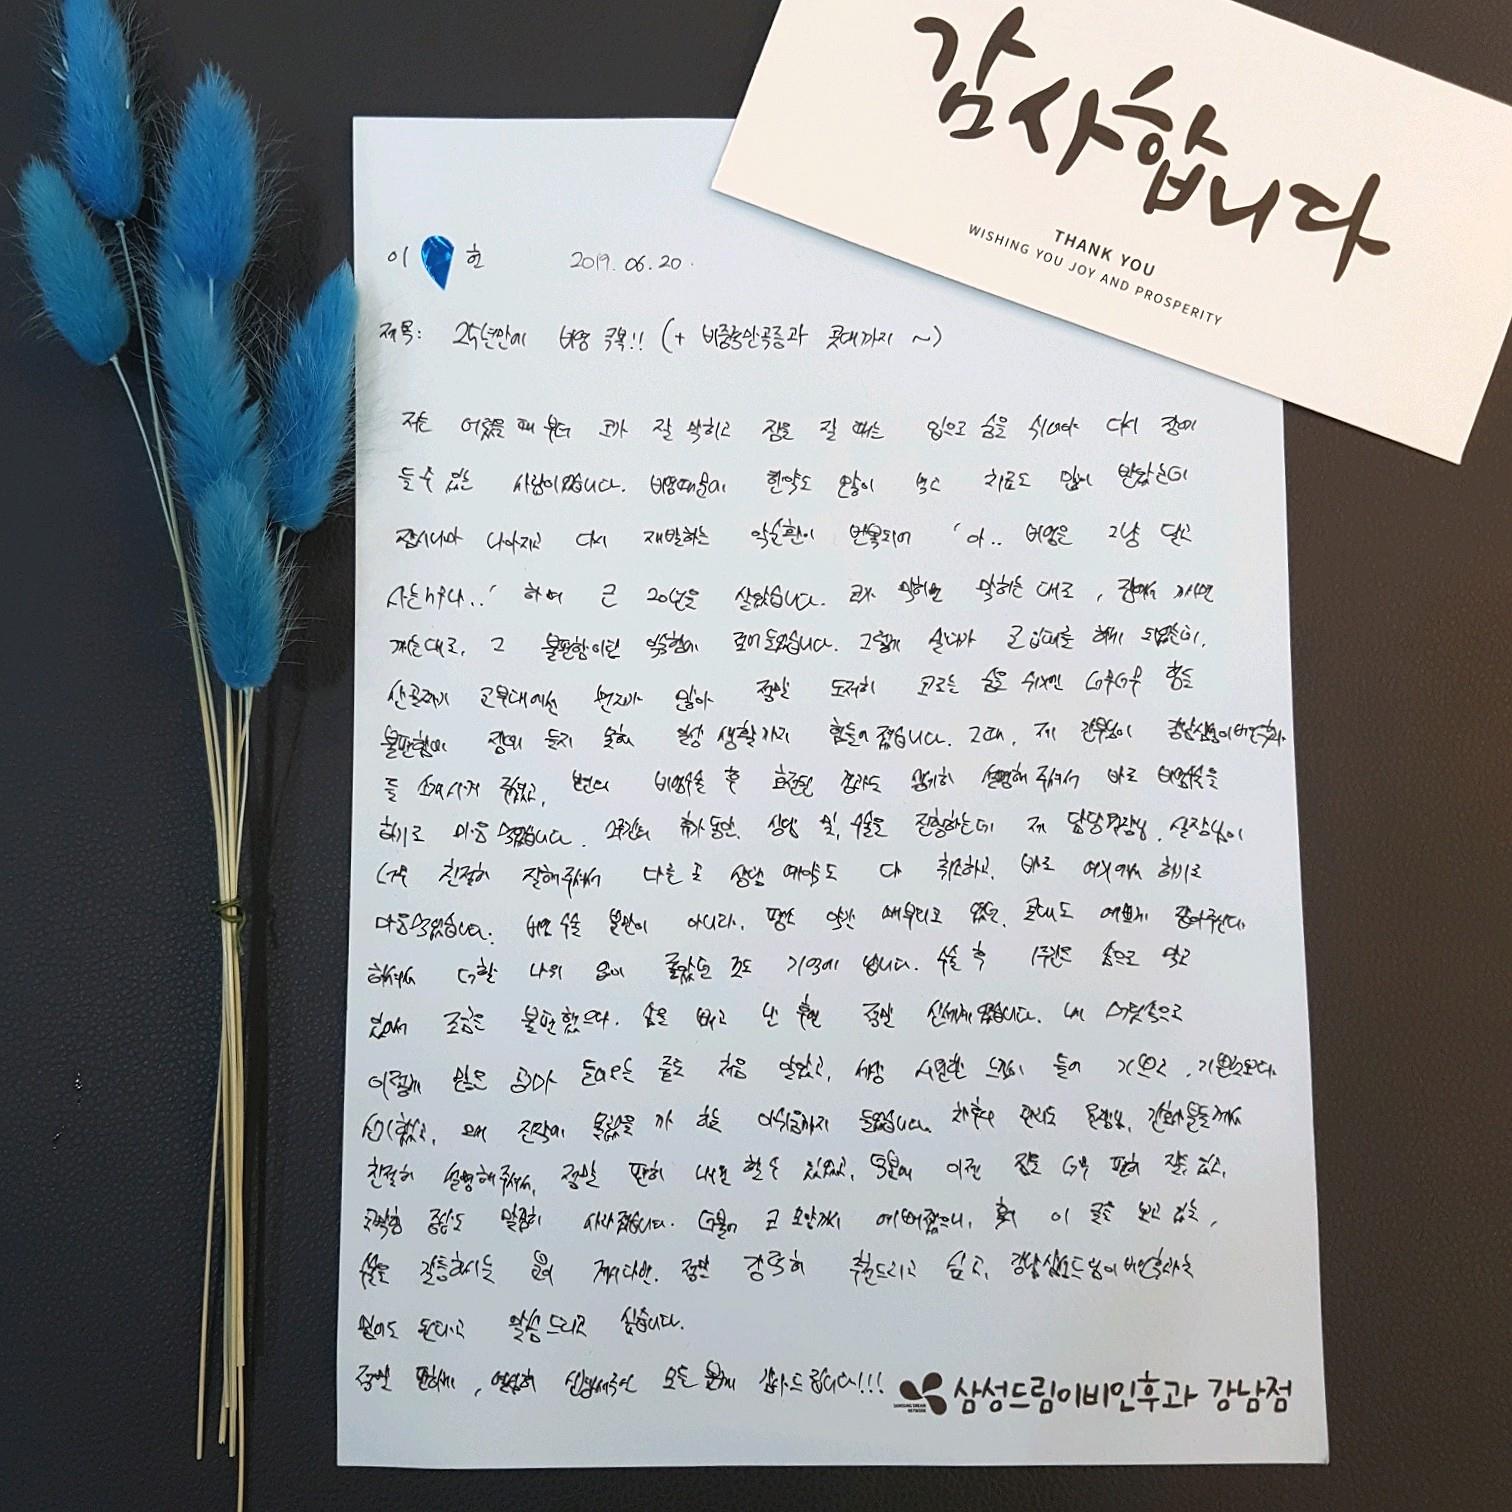 감사합니다
THANK YOU
WISHING YOU JOY AND PROSPERITY
이 현 2019. 06. 20.
제목: 24년만에 비염 극복!! (+ 비중축만곡증과 콧대까지 ~)
저는 어렸을 때 부터 코가 잘 막히고 잠을 잘 때는 입으로 숨을 쉬어야 다시 잠에
들 수 있는 사람이었습니다. 비염때문에 한약도 많이 먹고 치료도 많이 받았는데
잠시나마 나아지고 다시 재발하는 악순환이 반복되어 '아.. 비염은 그냥 달고
사는거구나..' 하며 근 20년을 살았습니다. 코가 막히면 막히는 대로, 잠에서 깨면
깨는대로, 그 불편함이란 익숙함에 살다가 군입대를 하게 되었는데,
산골짜기 군부대에선 먼지가 많아 정말 도저히 코로는 숨을 쉬기엔 너무너무 힘들
불편함에 잠에 들지 못해 일상 생활까지 힘들어 졌습니다. 그때, 제 간부님이
를 소개시켜 주셨고, 본인의 비염수술 후 호전된 결과도 상세히 설명해 주셔서 바로 비염수술을
하기로 마음 먹었습니다. 휴가 동안, 상담 및, 수술을 진행하는데 제 담당 원장님, 실장님이
너무 친절히 잘해주셔서 다른 곳 상담 예약도 다 취소하고, 바로 여기에서 하기로
마음먹었습니다. 비염 수술 뿐만이 아니라, 평소 약간 매부리코 였던, 콧대도 예쁘게 잡아주신다
하셔서 더할 나위 없이 좋았던 것도 기억에 납니다. 수술 후 1주간은 솜으로 막고
있어서 조금은 불편했으나, 솜을 빼고 난 후엔 정말 신세계였습니다. 내 콧속으로
이렇게 많은 공기가 들어오는 줄도 처음 알았고, 세상 시원한 느낌이 들어 기쁘고, 기쁜것보다
신기했고, 왜 진작에 몰랐을 까 하는 아쉬움까지 들었습니다. 차후 관리도 원장님, 간호사분들께서
친절히 설명해 주셔서, 정말 편히 내원 할 수 있었고, 덕분에 이젠 잠도 너무 편히 잘 수 있고,
코막힘 증상도 말끔히 사라졌습니다. 더불어 코 모양까지 예뻐졌으니, 혹시 이 글을 보고 있는,
수술을 갈등하시는 분이 계시다면, 정말 강력히 추천드리고 싶고, 강남삼성드림이비인후과는
믿어도 된다고 말씀 드리고 싶습니다.
정말 편하게, 열심히 신경써주신 모든 분께 감사드립니다!!!
SAMSUNG DREAM
NETWORK
삼성드림이비인후과 강남점